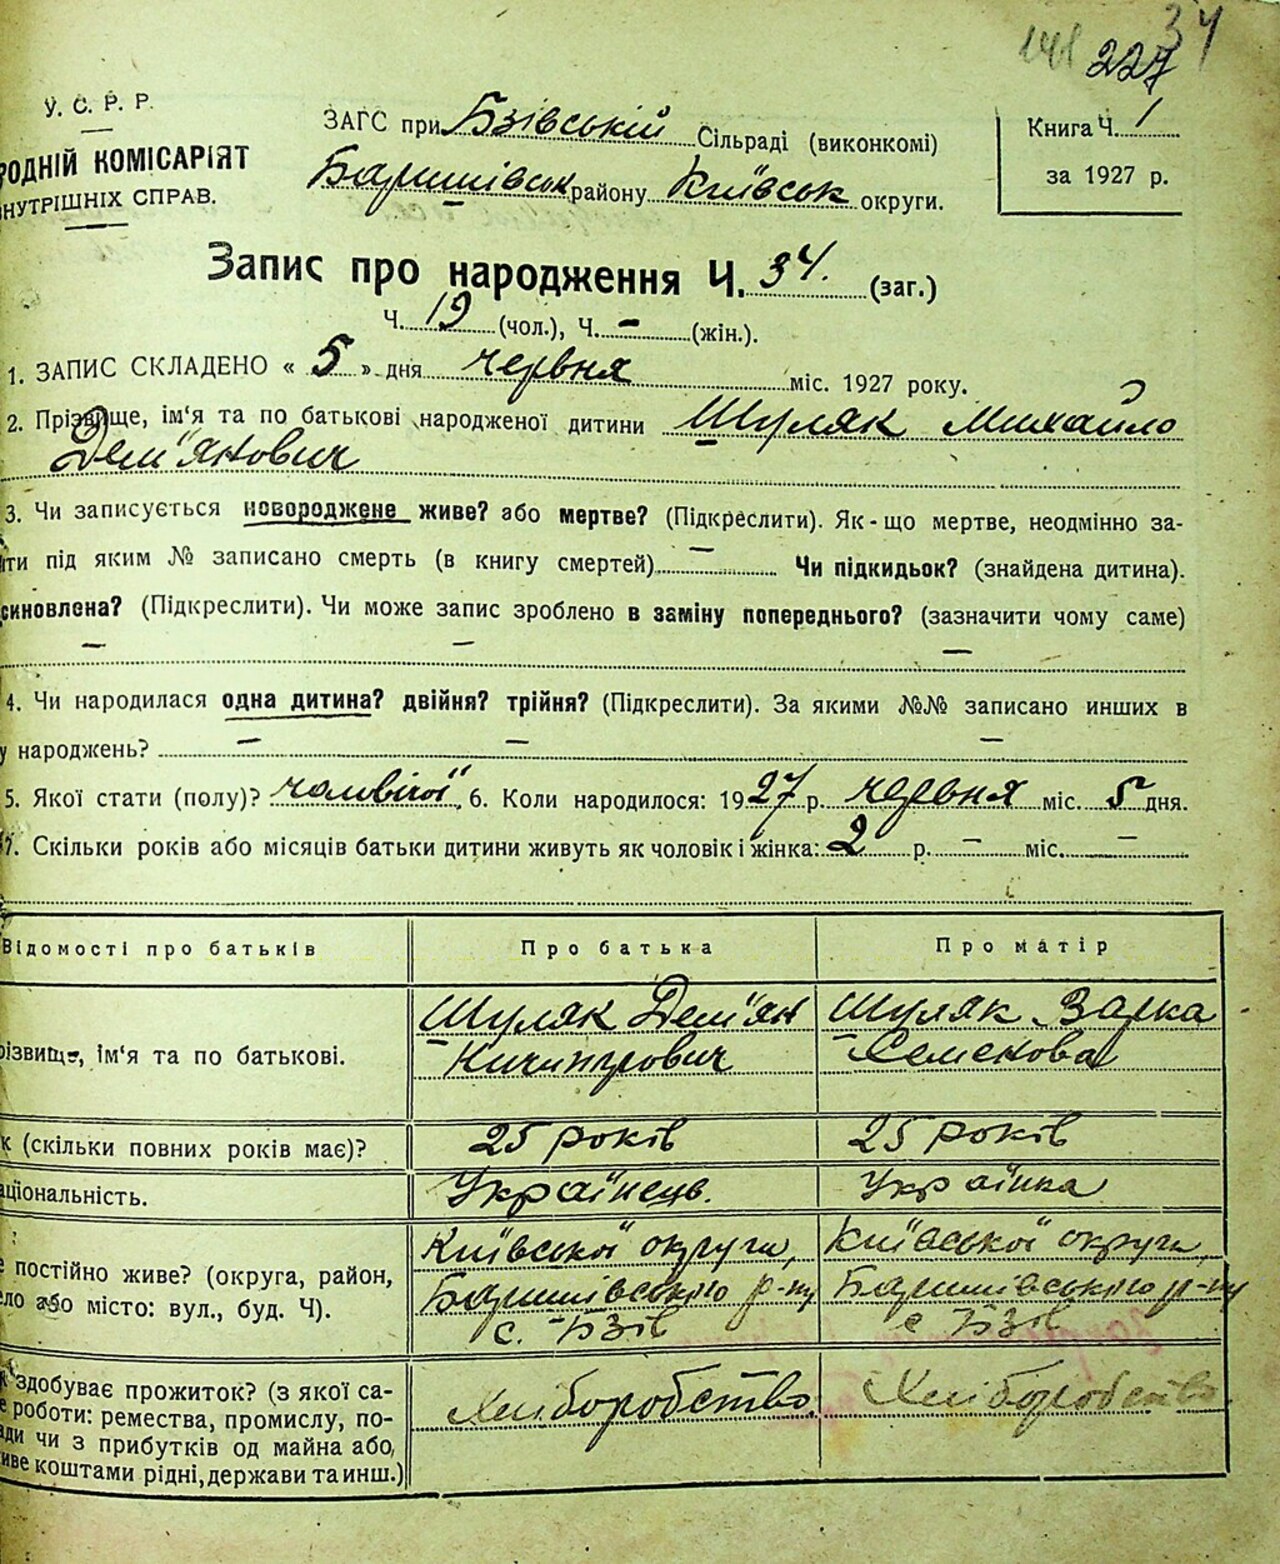 34
141 227
У. С. Р. Р.
РОДНІЙ КОМІСАРІЯТ
НУТРІШНІХ СПРАВ.
ЗАГС при Бзівській Сільраді (виконкомі)
Баришівськ району Київськ округи.
Книга Ч. 1
за 1927 р.
Запис про народження Ч. 34. (заг.)
Ч. 19 (чол.), Ч. – (жін.).
1. ЗАПИС СКЛАДЕНО « 5 » дня червня міс. 1927 року.
2. Прізвище, ім'я та по батькові народженої дитини Шуляк Михайло
Дем'янович
3. Чи записується новороджене живе? або мертве? (Підкреслити). Як-що мертве, неодмінно за-
ти під яким № записано смерть (в книгу смертей) – Чи підкидьок? (знайдена дитина).
синовлена? (Підкреслити). Чи може запис зроблено в заміну попереднього? (зазначити чому саме)
– – –
4. Чи народилася одна дитина? двійня? трійня? (Підкреслити). За якими №№ записано инших в
у народжень? – – –
5. Якої стати (полу)? чоловічої 6. Коли народилося: 1927 р. червня міс. 5 дня.
7. Скільки років або місяців батьки дитини живуть як чоловік і жінка: 2 р. – міс. –
Відомості про батьків Про батька Про матір
різвище, ім'я та по батькові. Шуляк Дем'ян Шуляк Варка
Кичипурович Семенова
к (скільки повних років має)? 25 років 25 років
аціональність. Українець. Українка
е постійно живе? (округа, район, Київської округи, Київської округи,
ло або місто: вул., буд. Ч). Баришівського р-ну Баришівського р-ну
с. Бзів с Бзів
здобуває прожиток? (з якої са- Хліборобство. Хліборобство
е роботи: ремества, промислу, по-
ади чи з прибутків од майна або,
иве коштами рідні, держави та инш.)